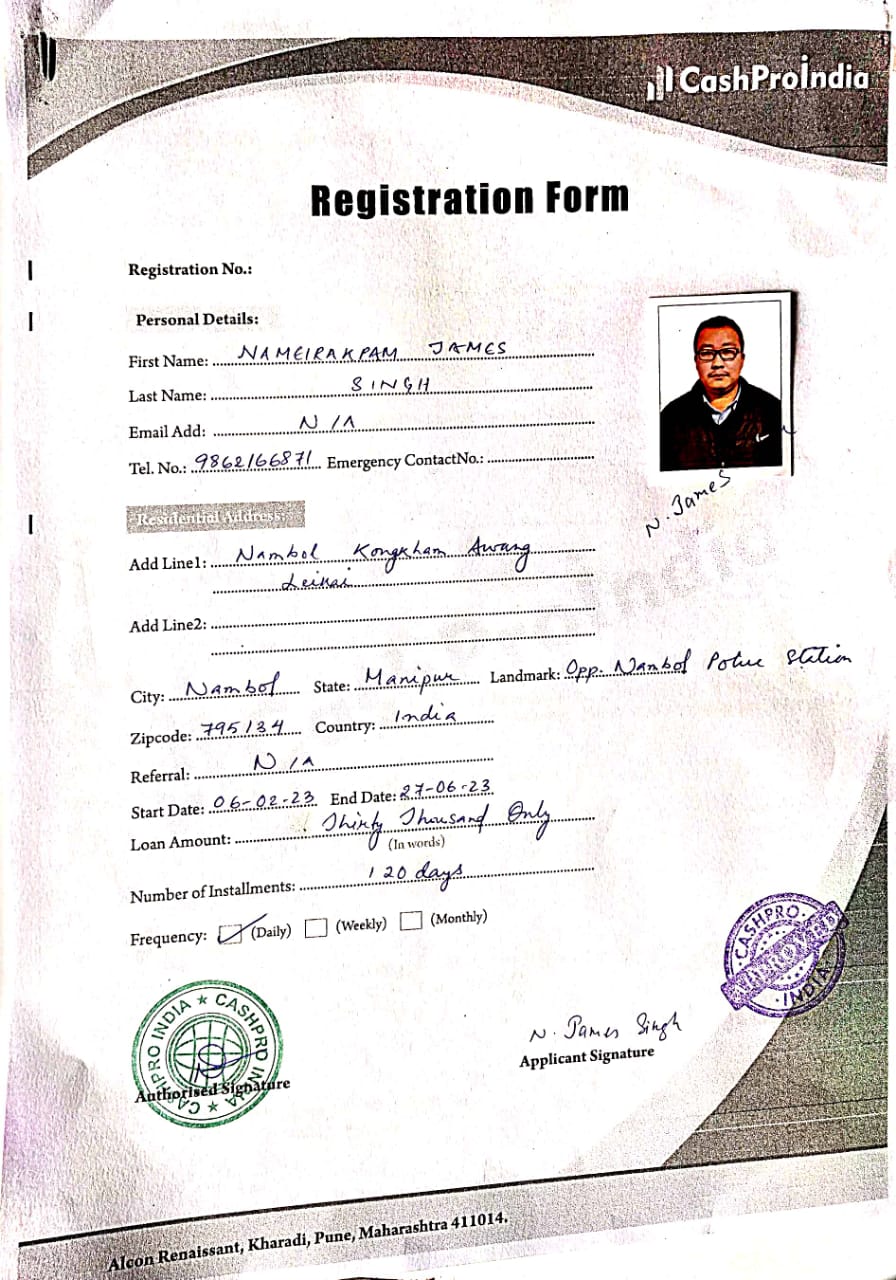 CashProIndia
Registration Form
Registration No.:
Personal Details:
First Name: NAMEIRAKPAM JAMES
Last Name: SINGH
Email Add: N/A
Tel. No.: 9862166871 Emergency ContactNo.:
N. James
Residential Address:
Add Line1: Nambol Kongkham Awang
Leikai
Add Line2:
City: Nambol State: Manipur Landmark: Opp. Nambol Police Station
Zipcode: 795134 Country: India
Referral: N/A
Start Date: 06-02-23 End Date: 27-06-23
Loan Amount: Thirty Thousand Only
(In words)
Number of Installments: 120 days
Frequency: (Daily) (Weekly) (Monthly)
CASHPRO INDIA
CASHPRO INDIA ★ CASHPRO INDIA ★
N. James Singh
Applicant Signature
Authorised Signature
Alcon Renaissant, Kharadi, Pune, Maharashtra 411014.